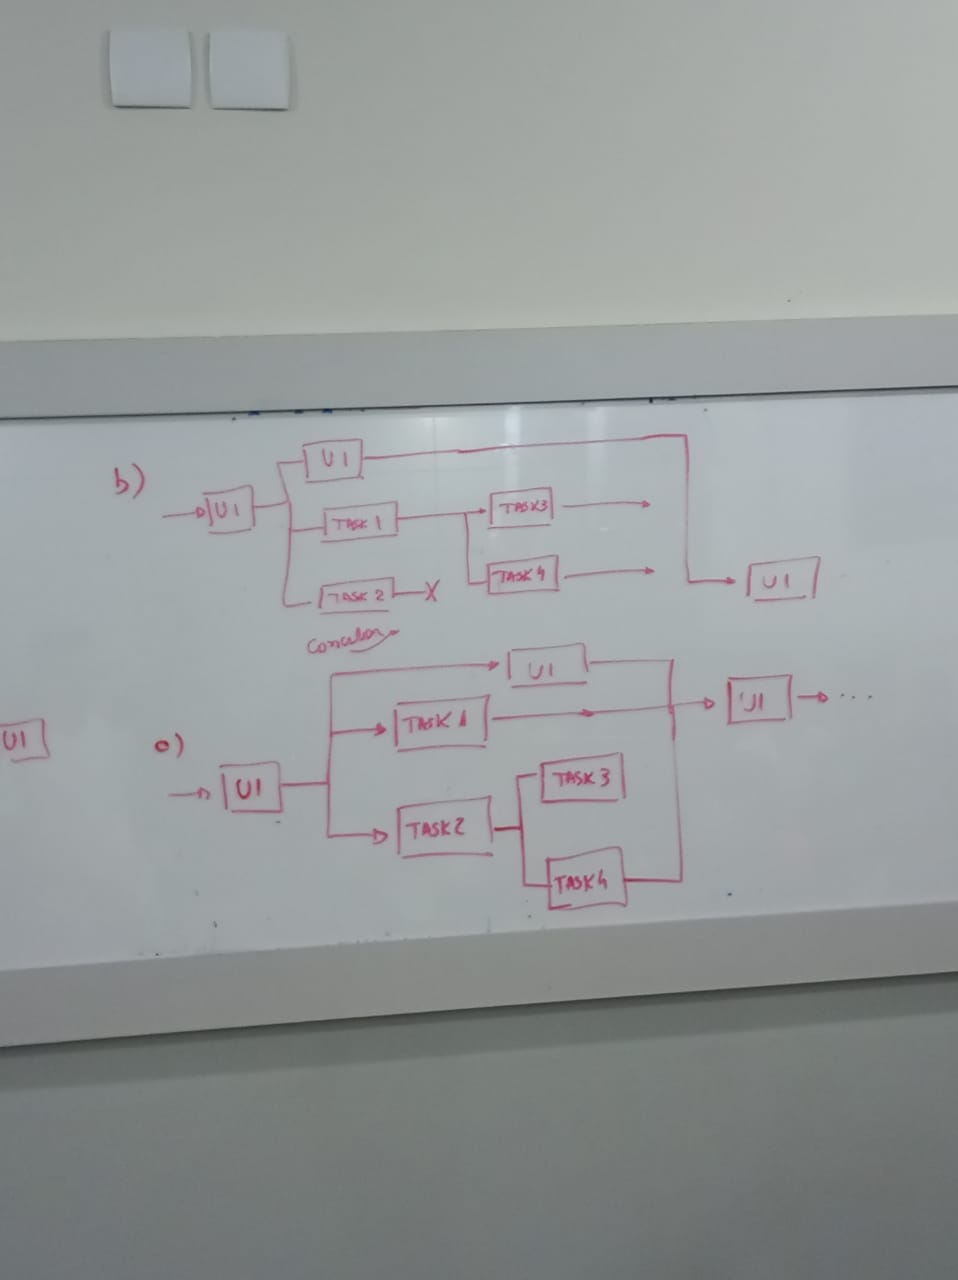 b)
UI
UI
TASK 1
TASK 2
TASK3
TASK 4
UI
UI
c)
UI
UI
TASK 1
TASK 2
TASK 3
TASK 4
UI
...